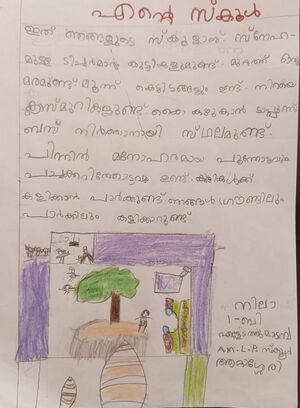 എന്റെ സ്കൂൾ
ഇത് ഞങ്ങളുടെ സ്കൂളാണ്. സ്നേഹ-
മുള്ള ടീച്ചർമാരും കുട്ടികളുമുണ്ട്. മുറ്റത്ത് ഒരു
മരമുണ്ട് മൂന്ന് കെട്ടിടങ്ങളും ഉണ്ട്. നിറയെ
ക്ലാസ്മുറികളുണ്ട്. കൈ കഴുകാൻ ടാപ്പുണ്ട്
ബസ് നിർത്താനായി സ്ഥലമുണ്ട്.
പിന്നിൽ മനോഹരമായ പൂന്തോട്ടവും
പച്ചക്കറിത്തോട്ടവും ഉണ്ട്. കുട്ടികൾക്ക്
കളിക്കാൻ പാർക്കുണ്ട് ഞങ്ങൾ ഗ്രൗണ്ടിലും
പാർക്കിലും കളിക്കാറുണ്ട്.
നിലാ
1-ബി
A.M.L.P. സ്കൂൾ